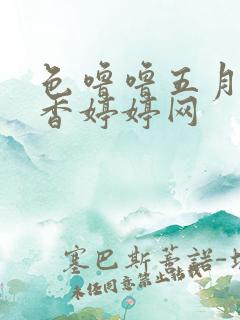 色噜噜五月
香婷婷网
塞巴斯蒂诺-
未经同意禁止转载